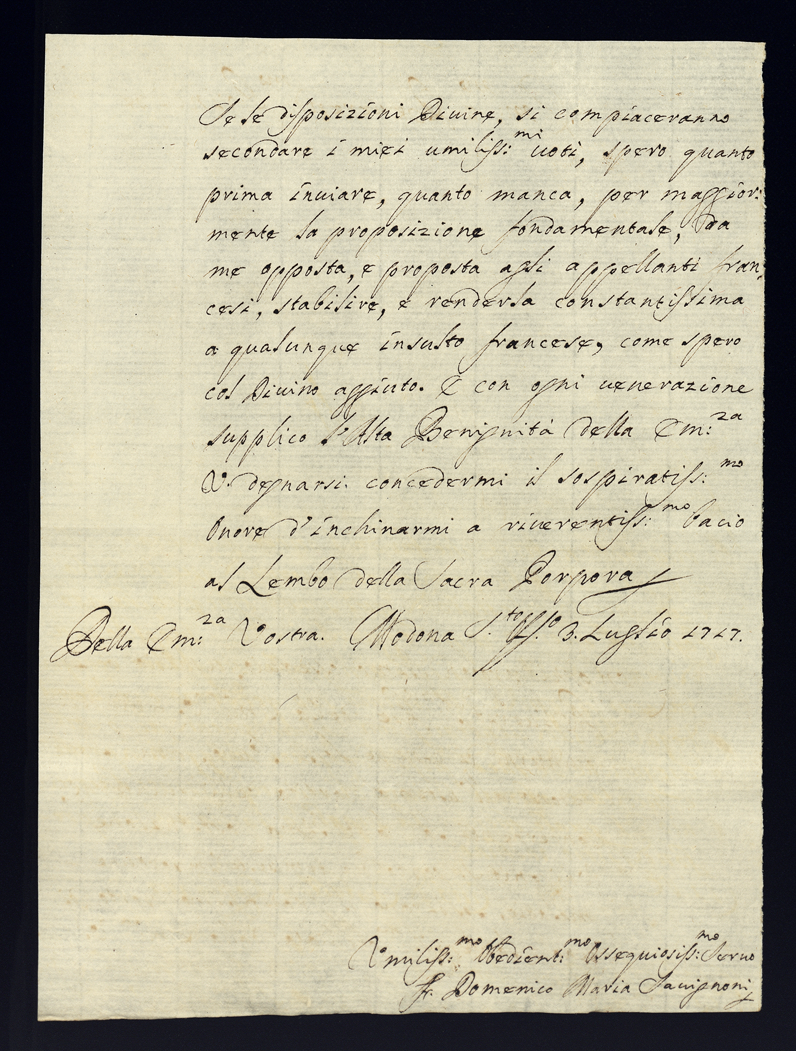 Se le disposizioni Divine, si compiaceranno
secondare i miei umiliss:mi uoti, spero quanto
prima inuiare, quanto manca, per maggior:
mente la proposizione fondamentale, da
me opposta, e proposta agli appellanti fran,
cesi, stabilire, e renderla constantissima
a qualunque insulto francese, come spero
col Divino aggiuto. E con ogni uenerazione
supplico l'Alta Benignità della Em:za
V. degnarsi. concedermi il sospiratiss:mo
Onore d'inchinarmi a riuerentiss:mo bacio
al Lembo della Sacra Porpora
Della Em:za Vostra. Modona 3. Luglio 1717.
Vmiliss:mo Obedient:mo Ossequiosiss:mo Seruo
Fr. Domenico Maria Sauignoni